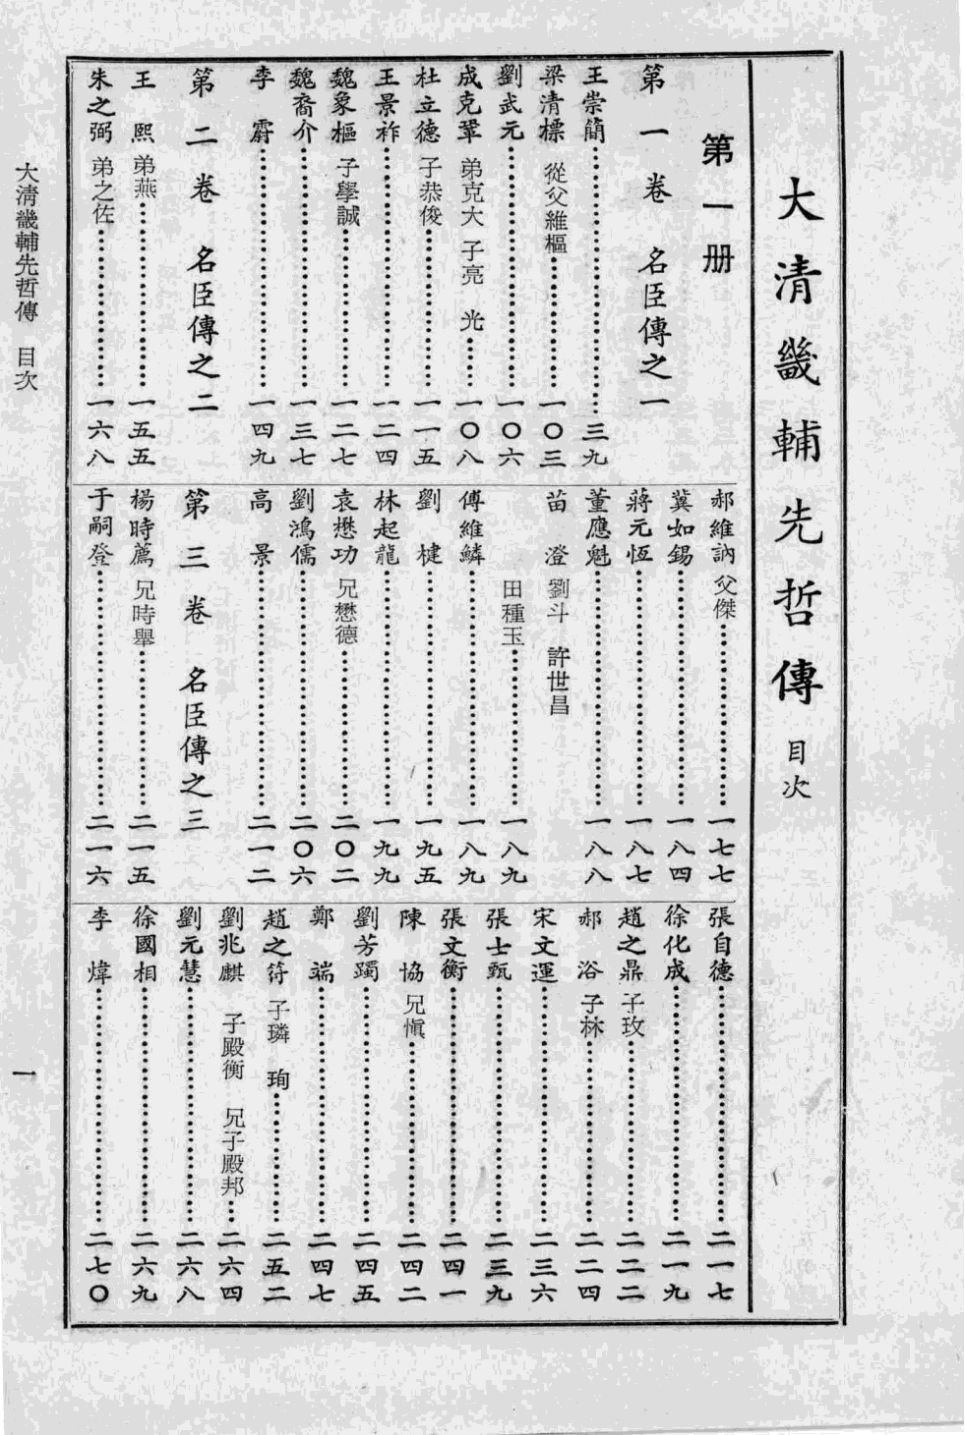 大清畿輔先哲傳 目次
第一册
第一卷 名臣傳之一
王崇簡……三九
梁清標 從父維樞……一〇三
劉武元……一〇六
成克鞏 弟克大 子亮 光……一〇八
杜立德 子恭俊……一一五
王景祚……一二四
魏象樞 子學誠……一二七
魏裔介……一三七
李霨……一四九
第二卷 名臣傳之二
王熙 弟燕……一五五
朱之弼 弟之佐……一六八
郝維訥 父傑……一七七
冀如錫……一八四
蔣元恆……一八七
董應魁……一八八
苗澄 劉斗 許世昌
田種玉……一八九
傅維鱗……一八九
劉楗……一九五
林起龍……一九九
袁懋功 兄懋德……二〇二
劉鴻儒……二〇六
高景……二一二
第三卷 名臣傳之三
楊時薦 兄時舉……二一五
于嗣登……二一六
張自德……二一七
徐化成……二一九
趙之鼎 子玫……二二二
郝浴 子林……二二四
宋文運……二三六
張士甄……二三九
張文衡……二四一
陳協 兄愼……二四二
劉芳躅……二四五
鄭端……二四七
趙之符 子璘 珣……二五二
劉兆麒 子殿衡 兄子殿邦……二六四
劉元慧……二六八
徐國相……二六九
李煒……二七〇
大清畿輔先哲傳 目次
一